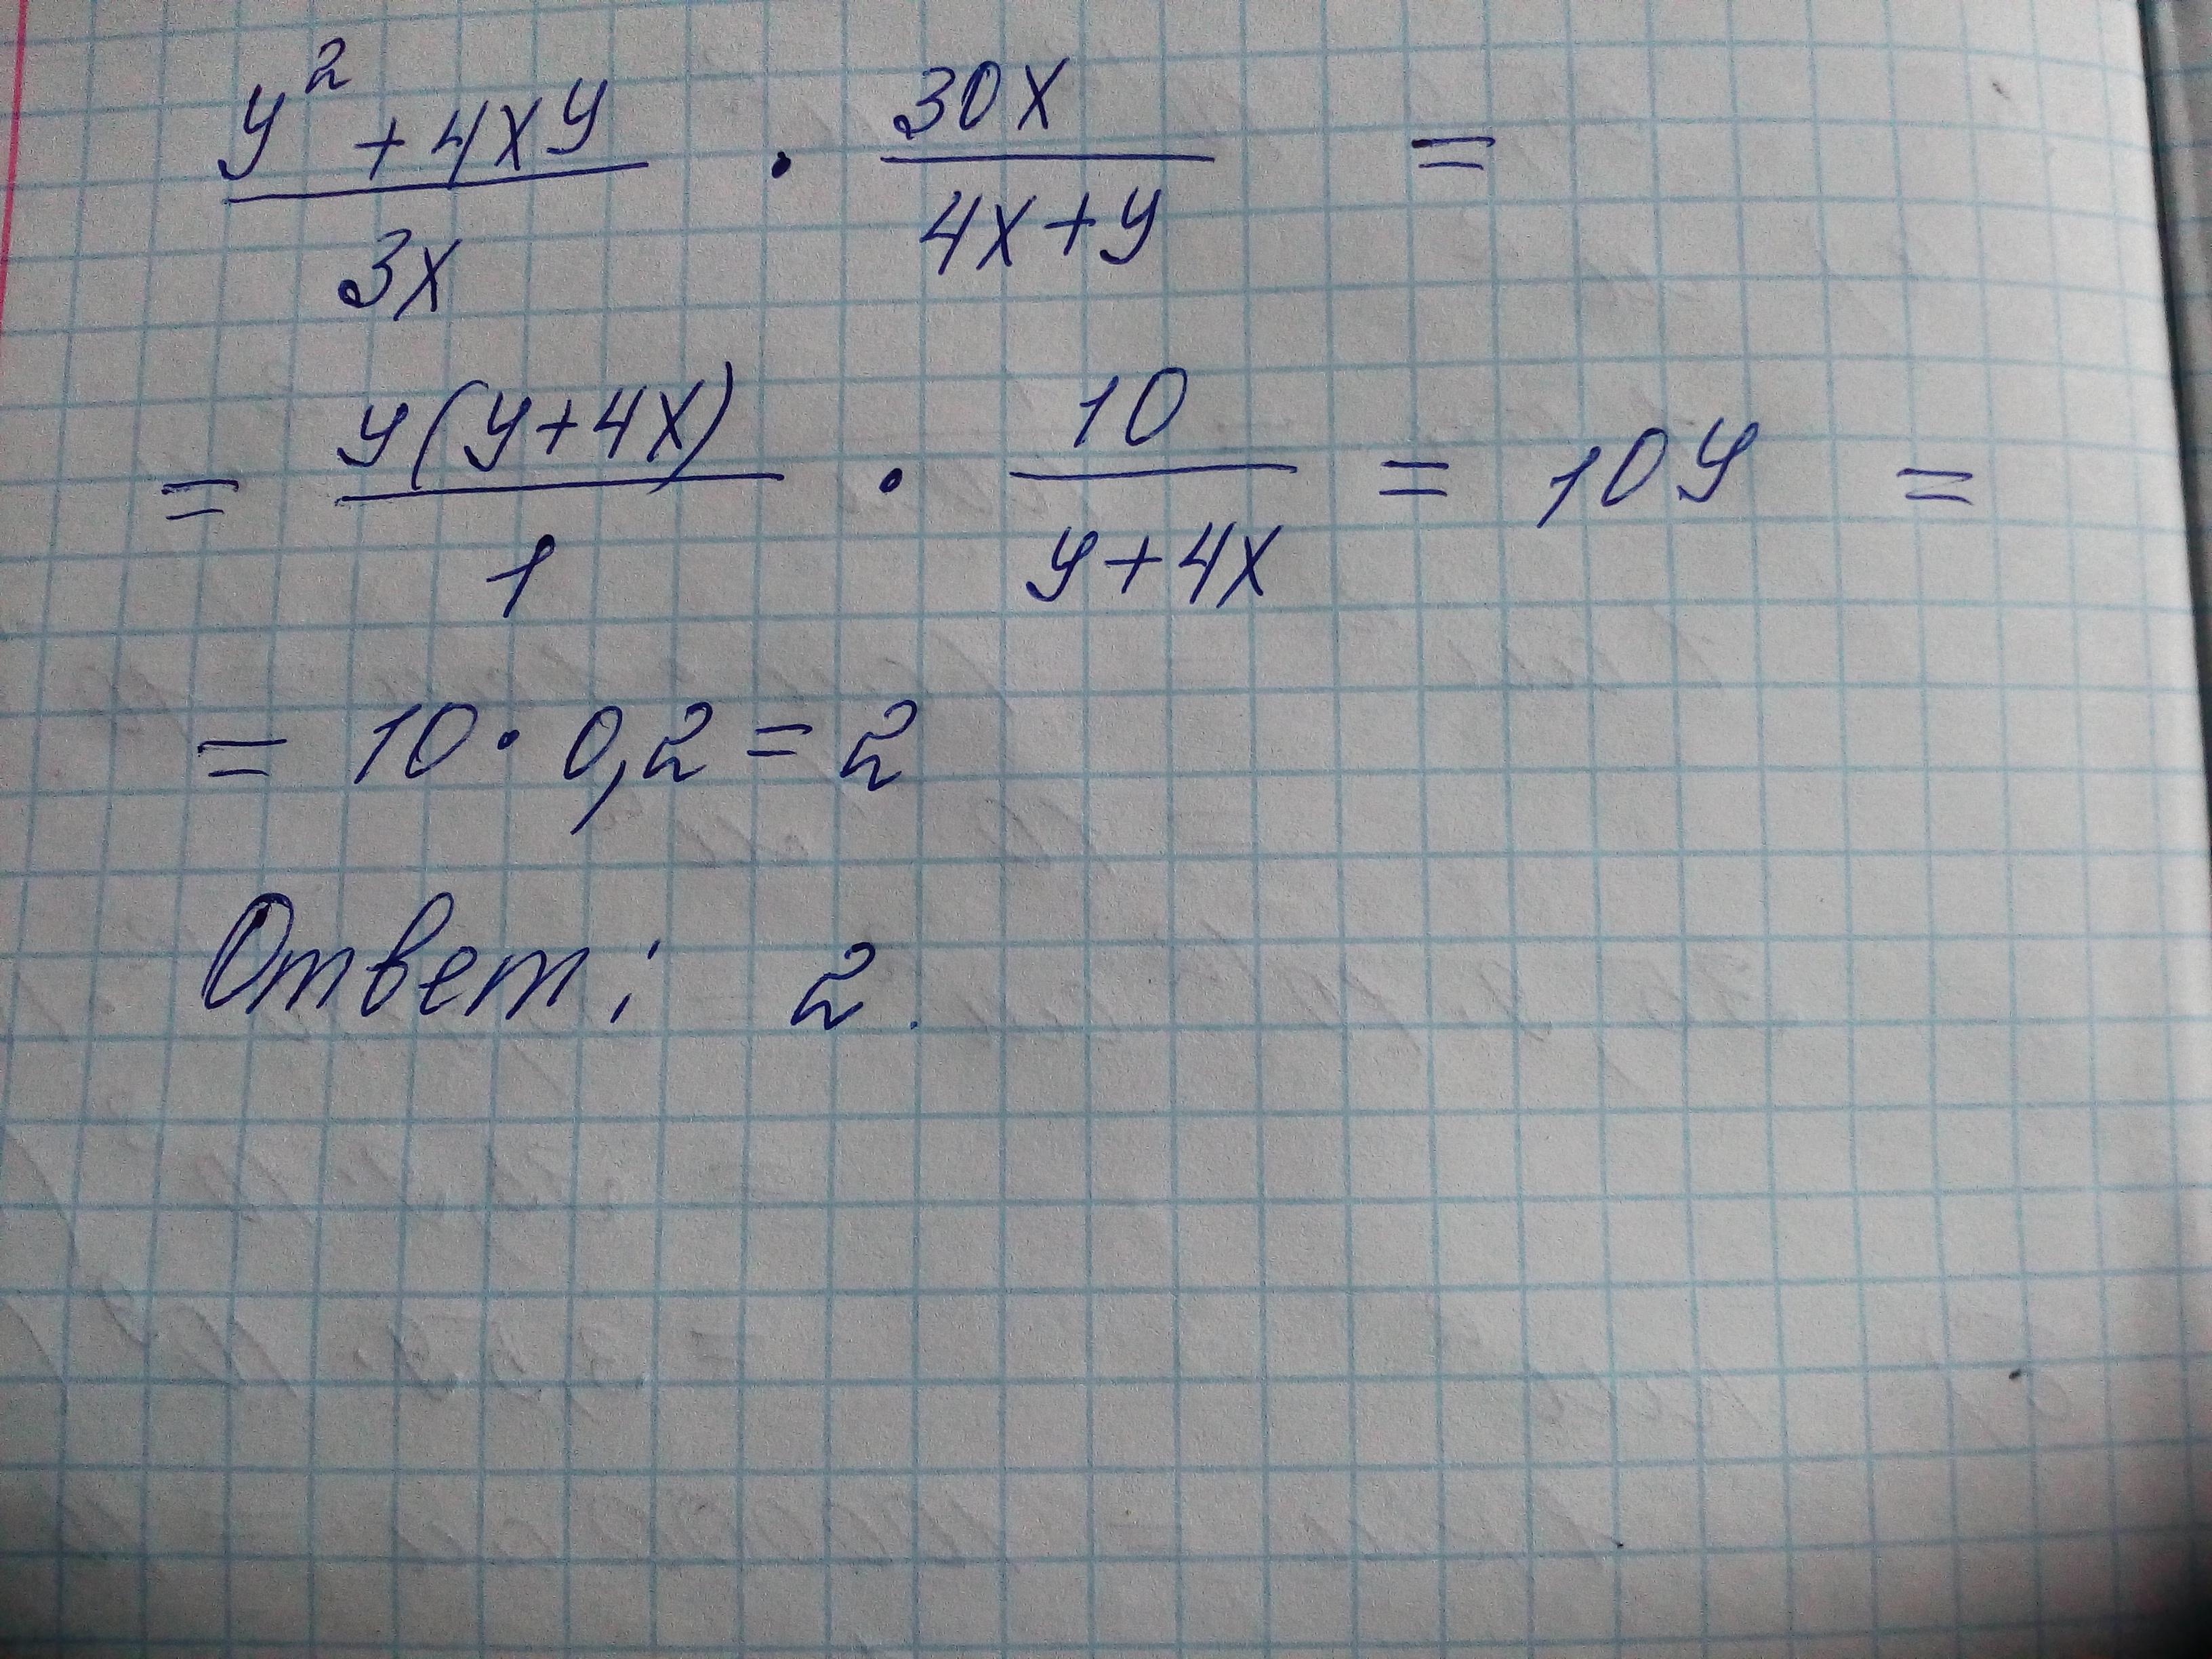 y² + 4xy / 3x · 30x / 4x+y =
= y(y+4x) / 1 · 10 / y+4x = 10y =
= 10 · 0,2 = 2
Ответ: 2.